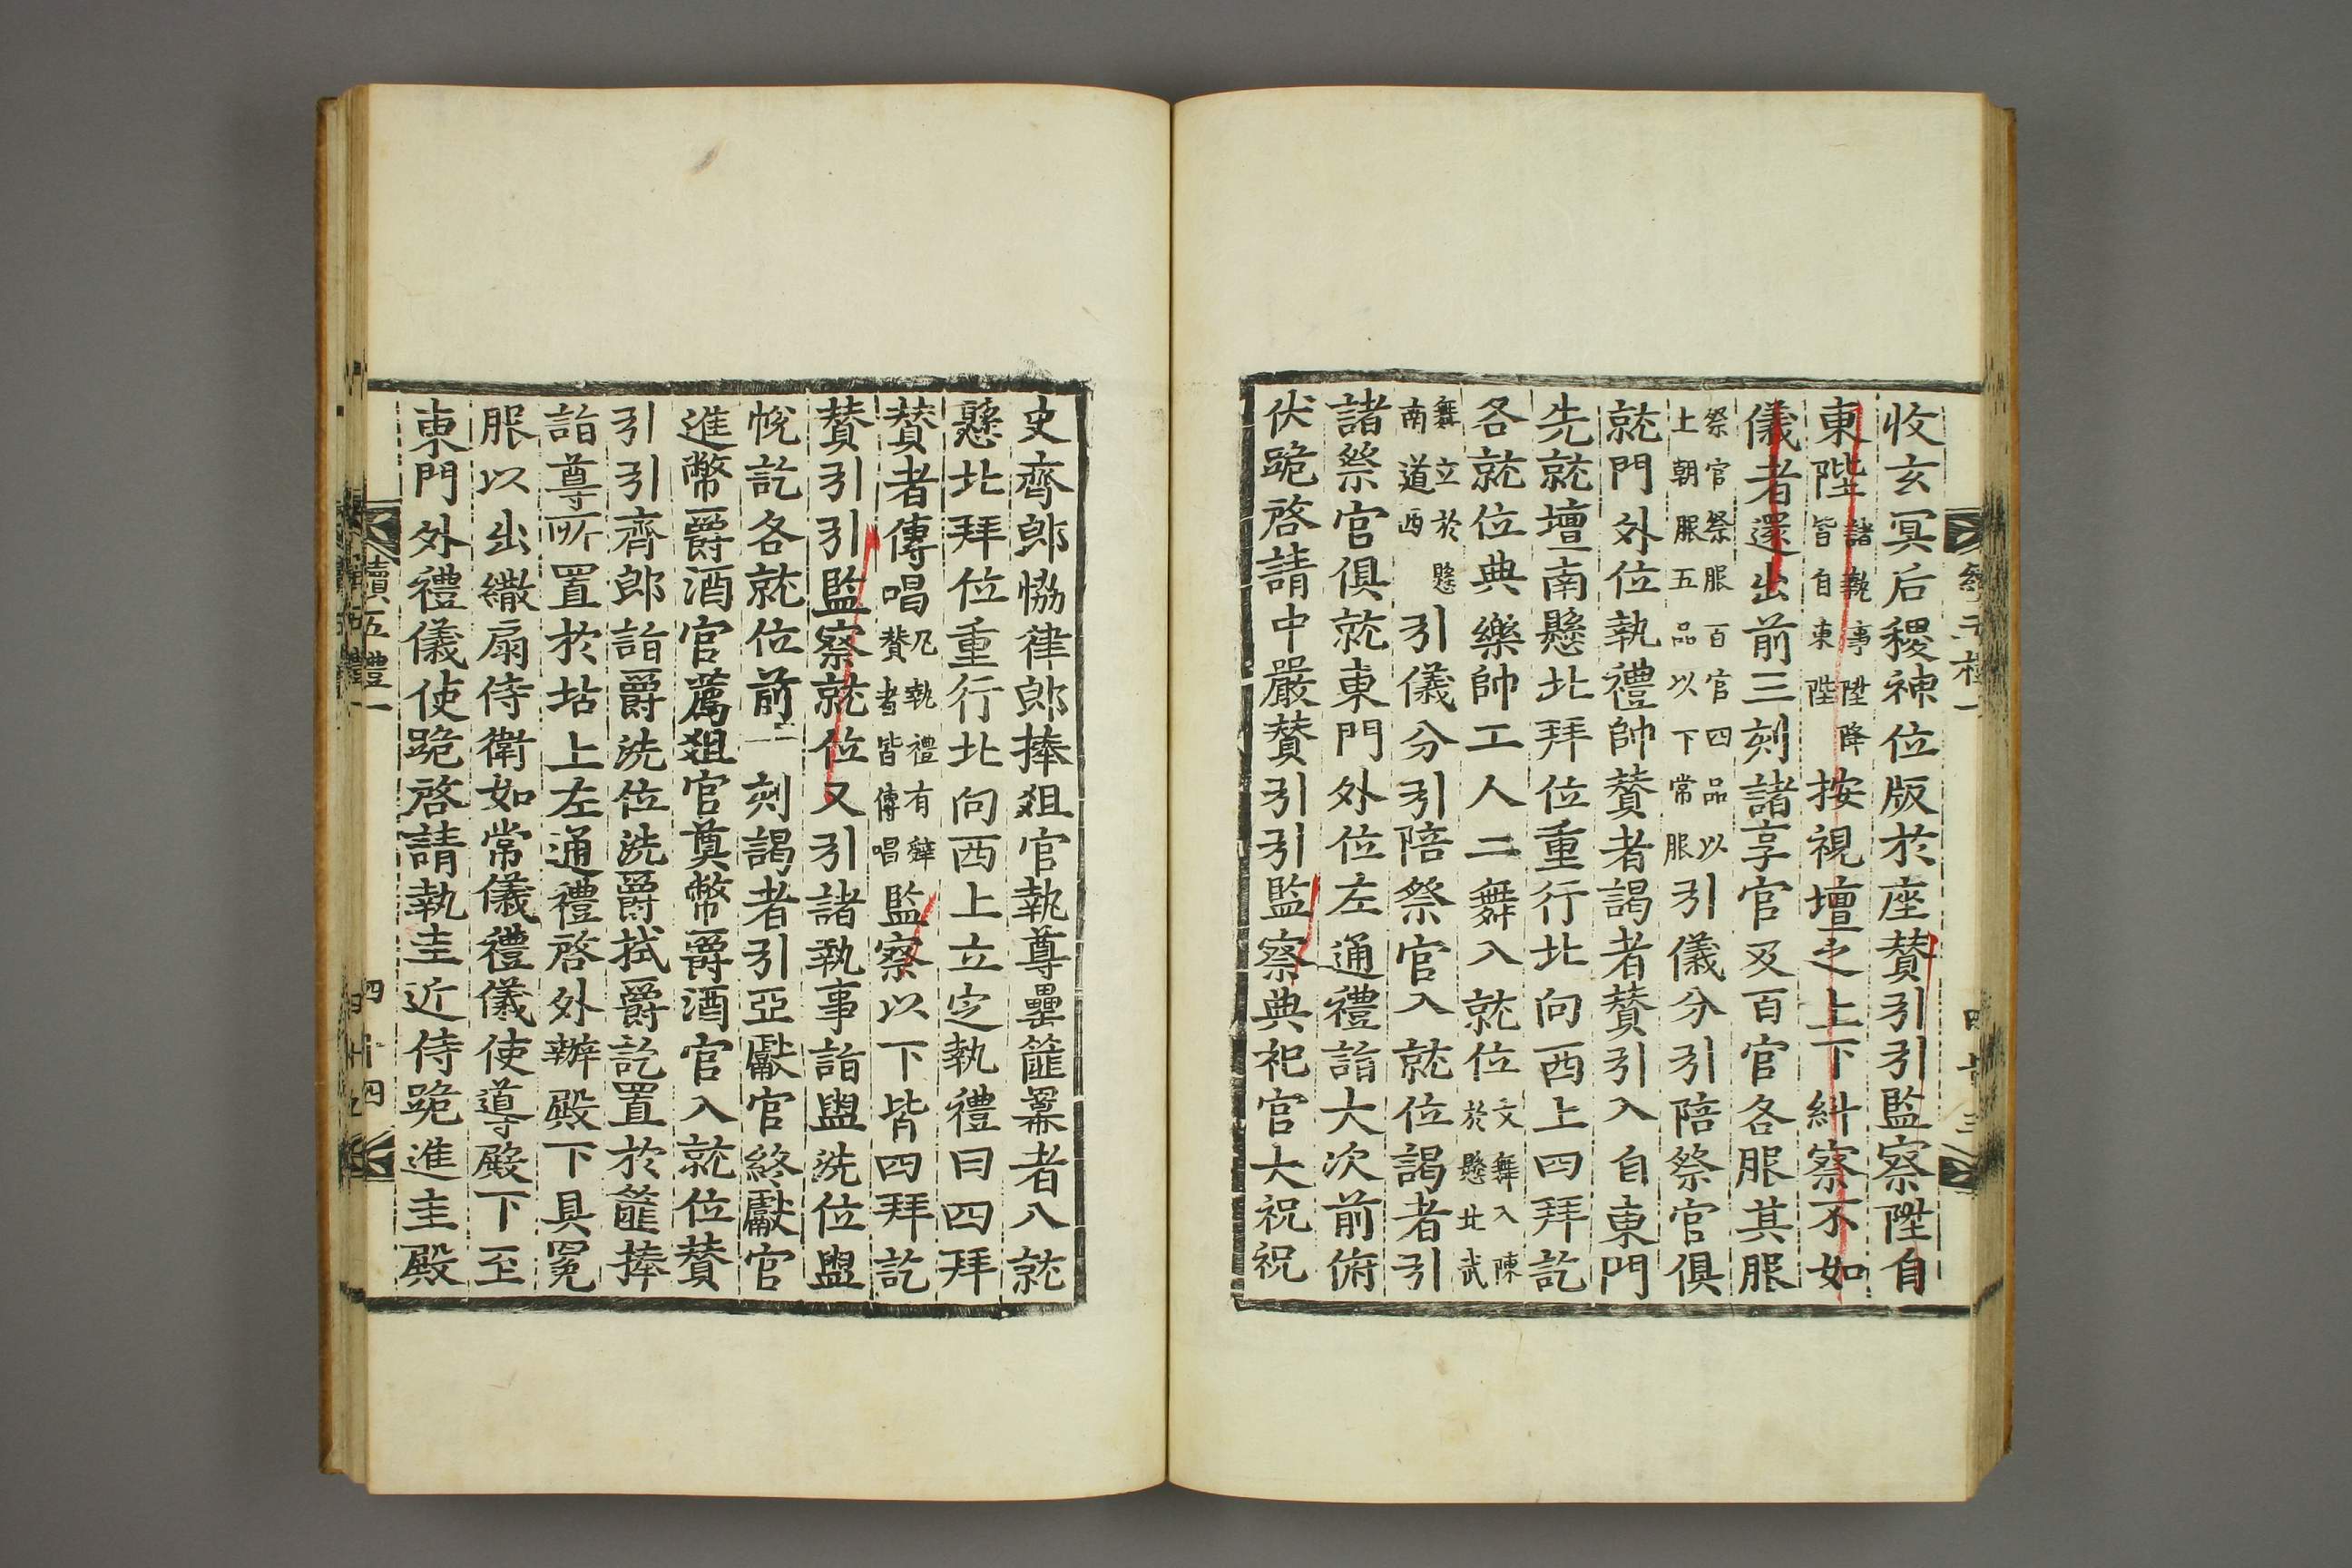 收玄冥后稷神位版於座贊引引監察陞自
東陛諸執事陞降皆自東陛按視壇之上下糾察不如
儀者還出前三刻諸享官及百官各服其服
祭官祭服百官四品以上朝服五品以下常服引儀分引陪祭官俱
就門外位執禮帥贊者謁者贊引入自東門
先就壇南懸北拜位重行北向西上四拜訖
各就位典樂帥工人二舞入就位文舞入陳於懸北武
舞立於懸南道西引儀分引陪祭官入就位謁者引
諸祭官俱就東門外位左通禮詣大次前俯
伏跪啓請中嚴贊引引監察典祀官大祝祝
史齊郞恊律郞捧俎官執尊罍篚冪者入就
懸北拜位重行北向西上立定執禮曰四拜
贊者傳唱凡執禮有辭贊者皆傳唱監察以下皆四拜訖
贊引引監察就位又引諸執事詣盥洗位盥
帨訖各就位前一刻謁者引亞獻官終獻官
進幣爵酒官薦俎官奠幣爵酒官入就位贊
引引齊郞詣爵洗位洗爵拭爵訖置於篚捧
詣尊所置於坫上左通禮啓外辦殿下具冕
服以出繖扇侍衛如常儀禮儀使導殿下至
東門外禮儀使跪啓請執圭近侍跪進圭殿
續五禮一
四十四